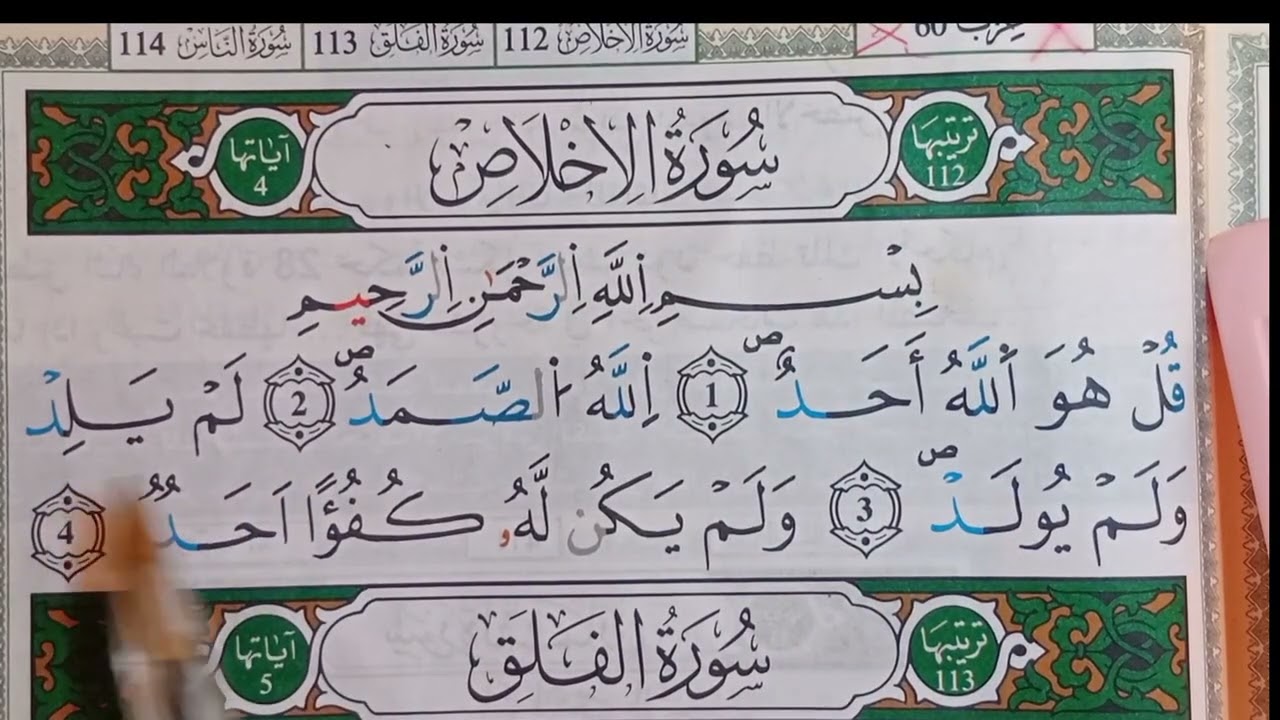 سُورَةُ النَّاسِ 114 سُورَةُ الفَلَقِ 113 سُورَةُ الإِخْلَاصِ 112 حِزْب 60
ترتيبها 112 سُورَةُ الإِخْلَاصِ آياتها 4
بِسْمِ اِللَّهِ اِلرَّحْمَٰنِ اِلرَّحِيمِ
قُلْ هُوَ اَللَّهُ أَحَدٌ ص 1 اِللَّهُ اُلصَّمَدُ ص 2 لَمْ يَلِدْ
وَلَمْ يُولَدْ ص 3 وَلَمْ يَكُن لَّهُۥ كُفُؤًا اَحَدٌ 4
ترتيبها 113 سُورَةُ الفَلَقِ آياتها 5